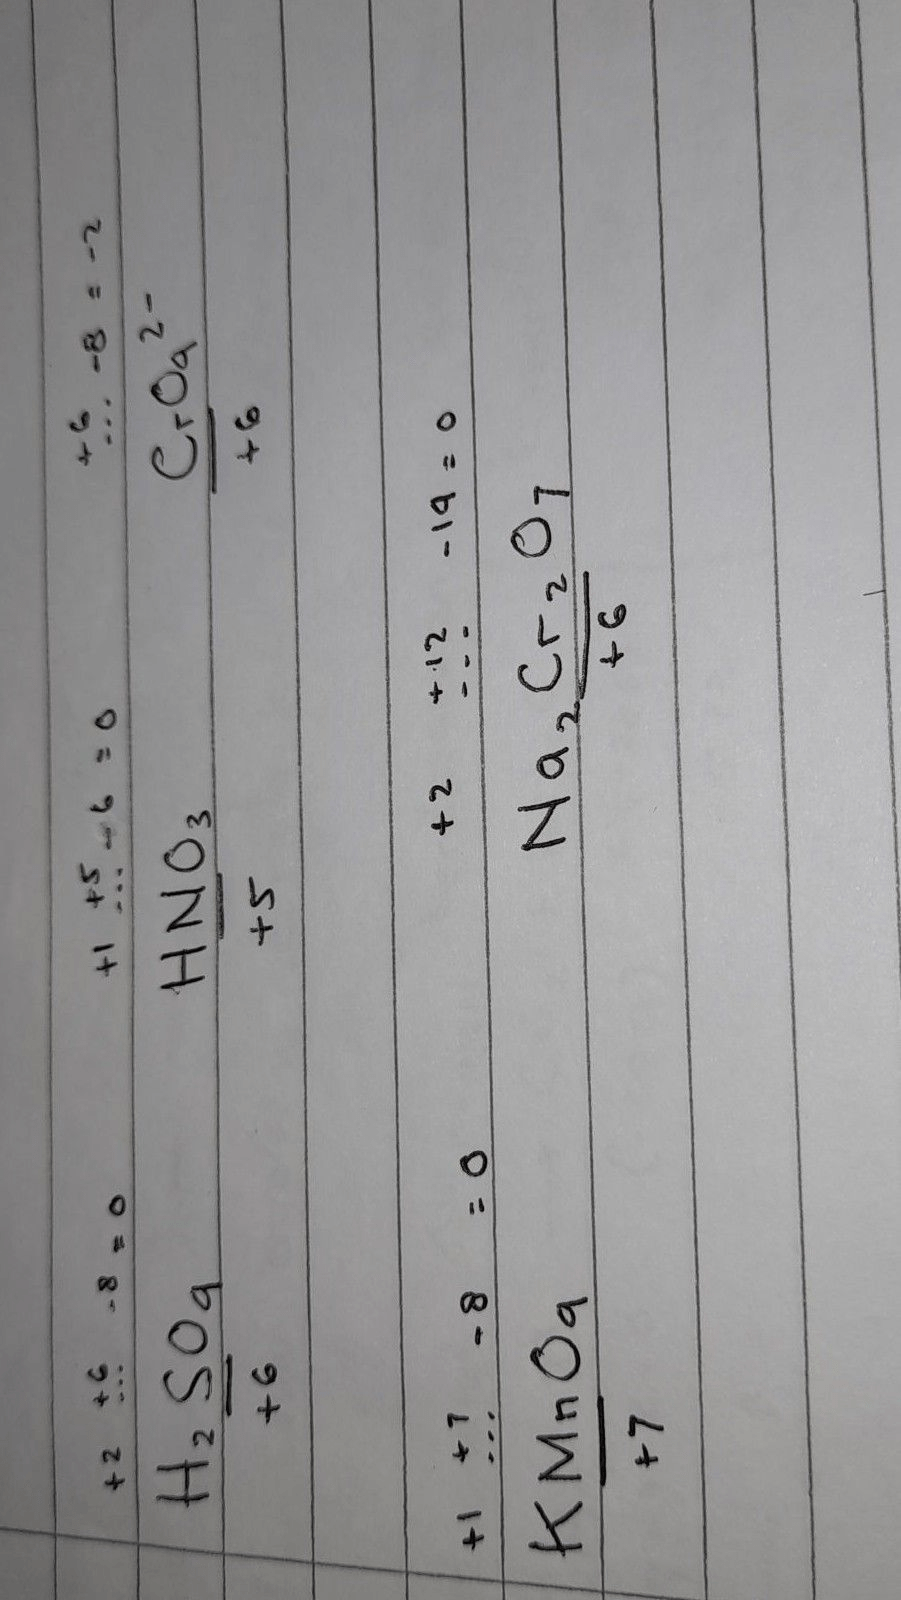 +2 +6 -8 = 0 +1 +5 -6 = 0 +6 -8 = -2
H₂SO₄ HNO₃ CrO₄²⁻
+6 +5 +6
+1 +7 -8 = 0 +2 +12 -14 = 0
KMnO₄ Na₂Cr₂O₇
+7 +6